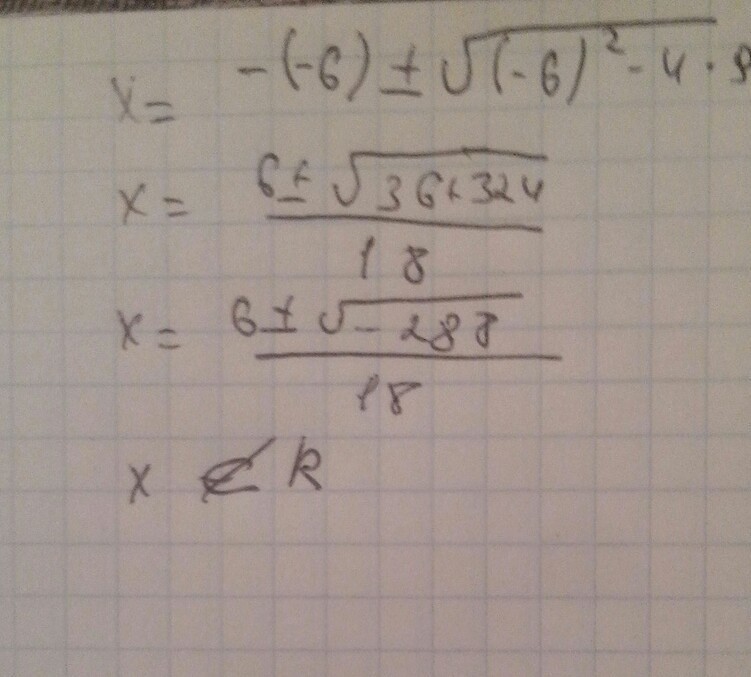 x = -(-6) ± √(-6)² - 4 · 9
x = 6 ± √36+324
18
x = 6 ± √-288
18
x ∉ R